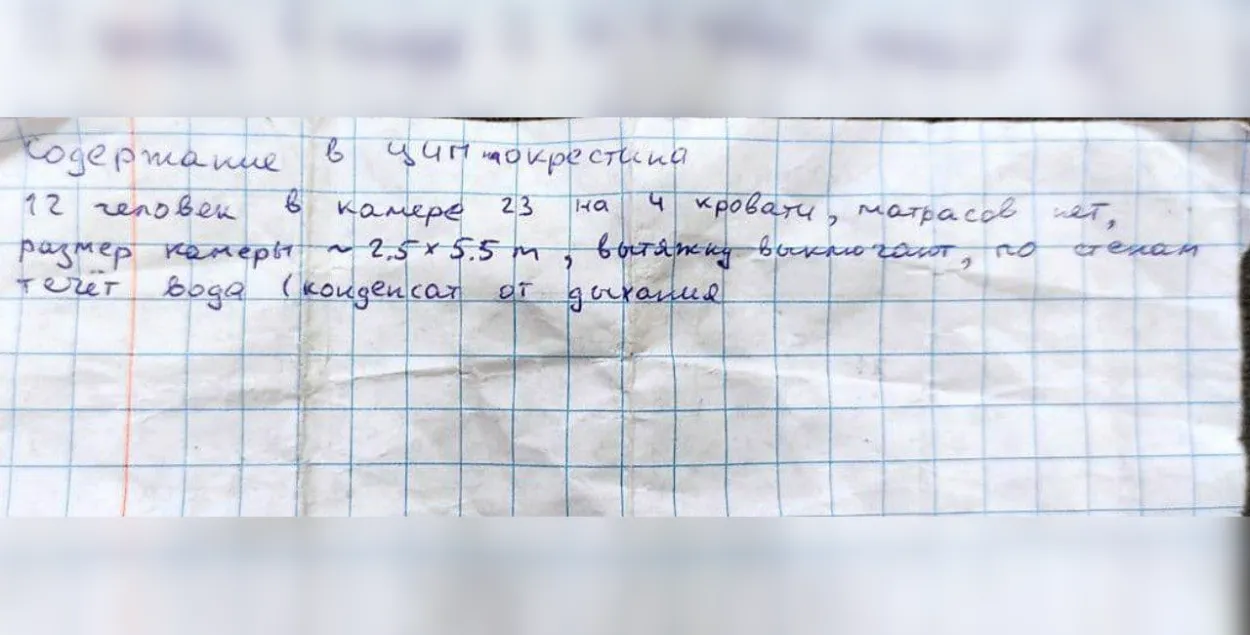 Содержание в ЦИП на Окрестина
12 человек в камере 23 на 4 кровати, матрасов нет,
размер камеры ~ 2.5 x 5.5 m, вытяжку выключают, по стенам
течёт вода (конденсат от дыхания